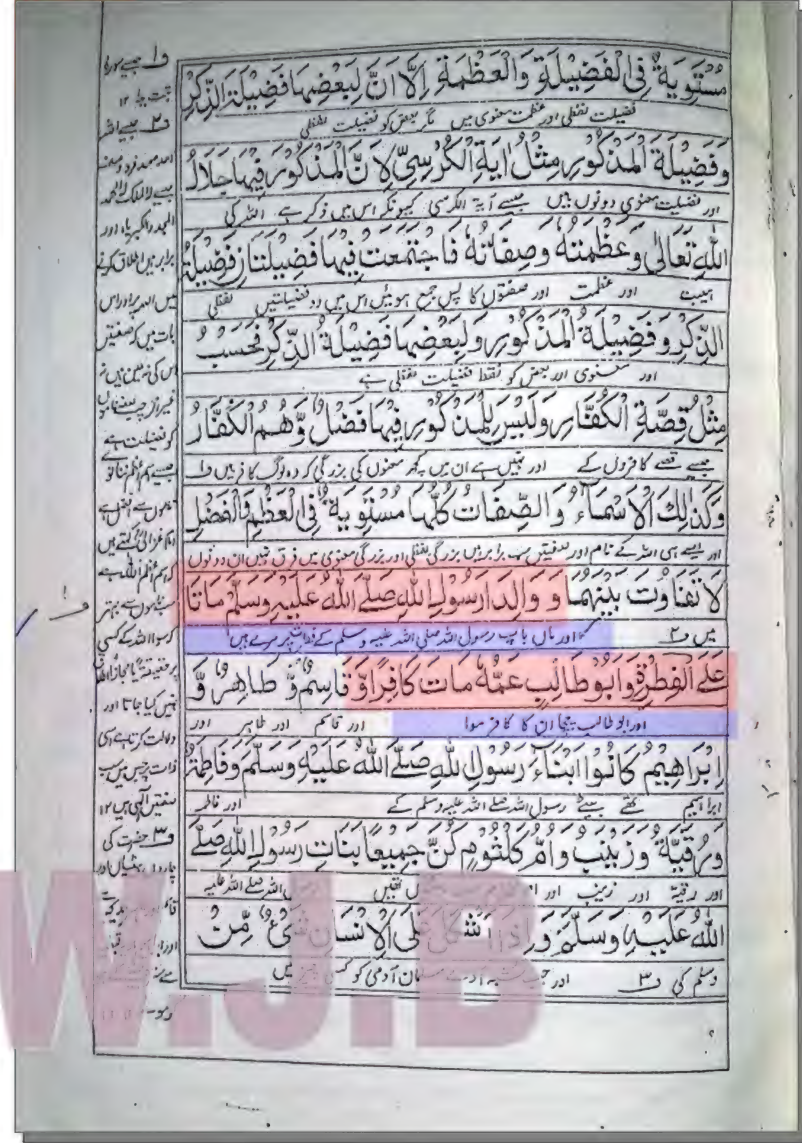 مُسْتَوِيَةٌ فِي الْفَضِيلَةِ وَالْعَظَمَةِ اِلَّا اَنَّ لِبَعْضِهَا فَضِيلَةَ الذِّكْرِ
فضیلت لفظی اور عظمت معنوی میں مگر بعض کو فضیلت لفظی
وَفَضِيلَةَ الْمَذْكُورِ مِثْلُ اٰيَةِ الْكُرْسِيِّ لِاَنَّ الْمَذْكُورَ فِيهَا جَلَالُ
اور فضیلت معنوی دونوں ہیں جیسے آیۃ الکرسی کیونکر اس میں ذکر ہے اللہ کی
اللهِ تَعَالٰى وَعَظْمَتُهُ وَصِفَاتُهُ فَاجْتَمَعَتْ فِيهَا فَضِيلَتَانِ فَضِيلَةُ
ہیبت اور عظمت اور صفتوں کا پس جمع ہوئیں اس میں دو فضیلتیں لفظی
الذِّكْرِ وَفَضِيلَةُ الْمَذْكُورِ وَلِبَعْضِهَا فَضِيلَةُ الذِّكْرِ فَحَسْبُ
اور معنوی اور بعض کو فقط فضیلت لفظی ہے
مِثْلُ قِصَّةِ الْكُفَّارِ وَلَيْسَ لِلْمَذْكُورِ فِيهَا فَضْلٌ وَّهُمُ الْكُفَّارُ
جیسے قصے کافروں کے اور نہیں ہے ان میں کچھ معنوں کی بزرگی کہ وہ لوگ کافر ہیں ف۱
وَكَذٰلِكَ الْاَسْمَآءُ وَالصِّفَاتُ كُلُّهَا مُسْتَوِيَةٌ فِي الْعَظْمِ وَالْفَضْلِ
اور ایسے ہی اللہ کے نام اور صفتیں سب برابر ہیں بزرگی لفظی اور بزرگی معنوی میں فرق نہیں ان دونوں
لَا تَفَاوُتَ بَيْنَهُمَا وَ وَالِدَا رَسُولِ اللهِ صَلَّى اللهُ عَلَيْهِ وَسَلَّمَ مَاتَا
میں ف۲ اور ماں باپ رسول اللہ صلی اللہ علیہ وسلم کے فطرت پر مرے ہیں
عَلَى الْفِطْرَةِ وَاَبُوْ طَالِبٍ عَمُّهُ مَاتَ كَافِرًا وَّ قَاسِمٌ وَّ طَاهِرٌ وَّ
اور ابو طالب چچا ان کا کافر موا اور قاسم اور طاہر اور
اِبْرَاهِيْمُ كَانُوْا اَبْنَآءَ رَسُوْلِ اللهِ صَلَّى اللهُ عَلَيْهِ وَسَلَّمَ وَفَاطِمَةُ
ابراہیم تھے بیٹے رسول اللہ صلے اللہ علیہ وسلم کے اور فاطمہ
وَرُقَيَّةُ وَزَيْنَبُ وَاُمُّ كُلْثُوْمٍ كُنَّ جَمِيْعًا بَنَاتِ رَسُوْلِ اللهِ صَلَّى
اور رقیۃ اور زینب اور تھیں رسول اللہ صلے اللہ علیہ
اللهُ عَلَيْهِ وَسَلَّمَ وَاِذَا اَشْكَلَ عَلَى الْاِنْسَانِ شَيْءٌ مِّنْ
وسلم کی ف۳ اور جب آدمی کو کسی چیز میں
ف۱ جیسے سورۃ
تبت یدا ۱۲
برابر ہیں اطلاق کرنے
بات میں کہ صفتیں
کو فضیلت ہے
کہ اسم اعظم اللہ ہے
کہ سوا اللہ کے کسی
نہیں کیا جاتا اور
صفتیں الٰہی ہیں ۱۲
ف۳ حضرت کی
چار بیٹیاں اور
W.J.B